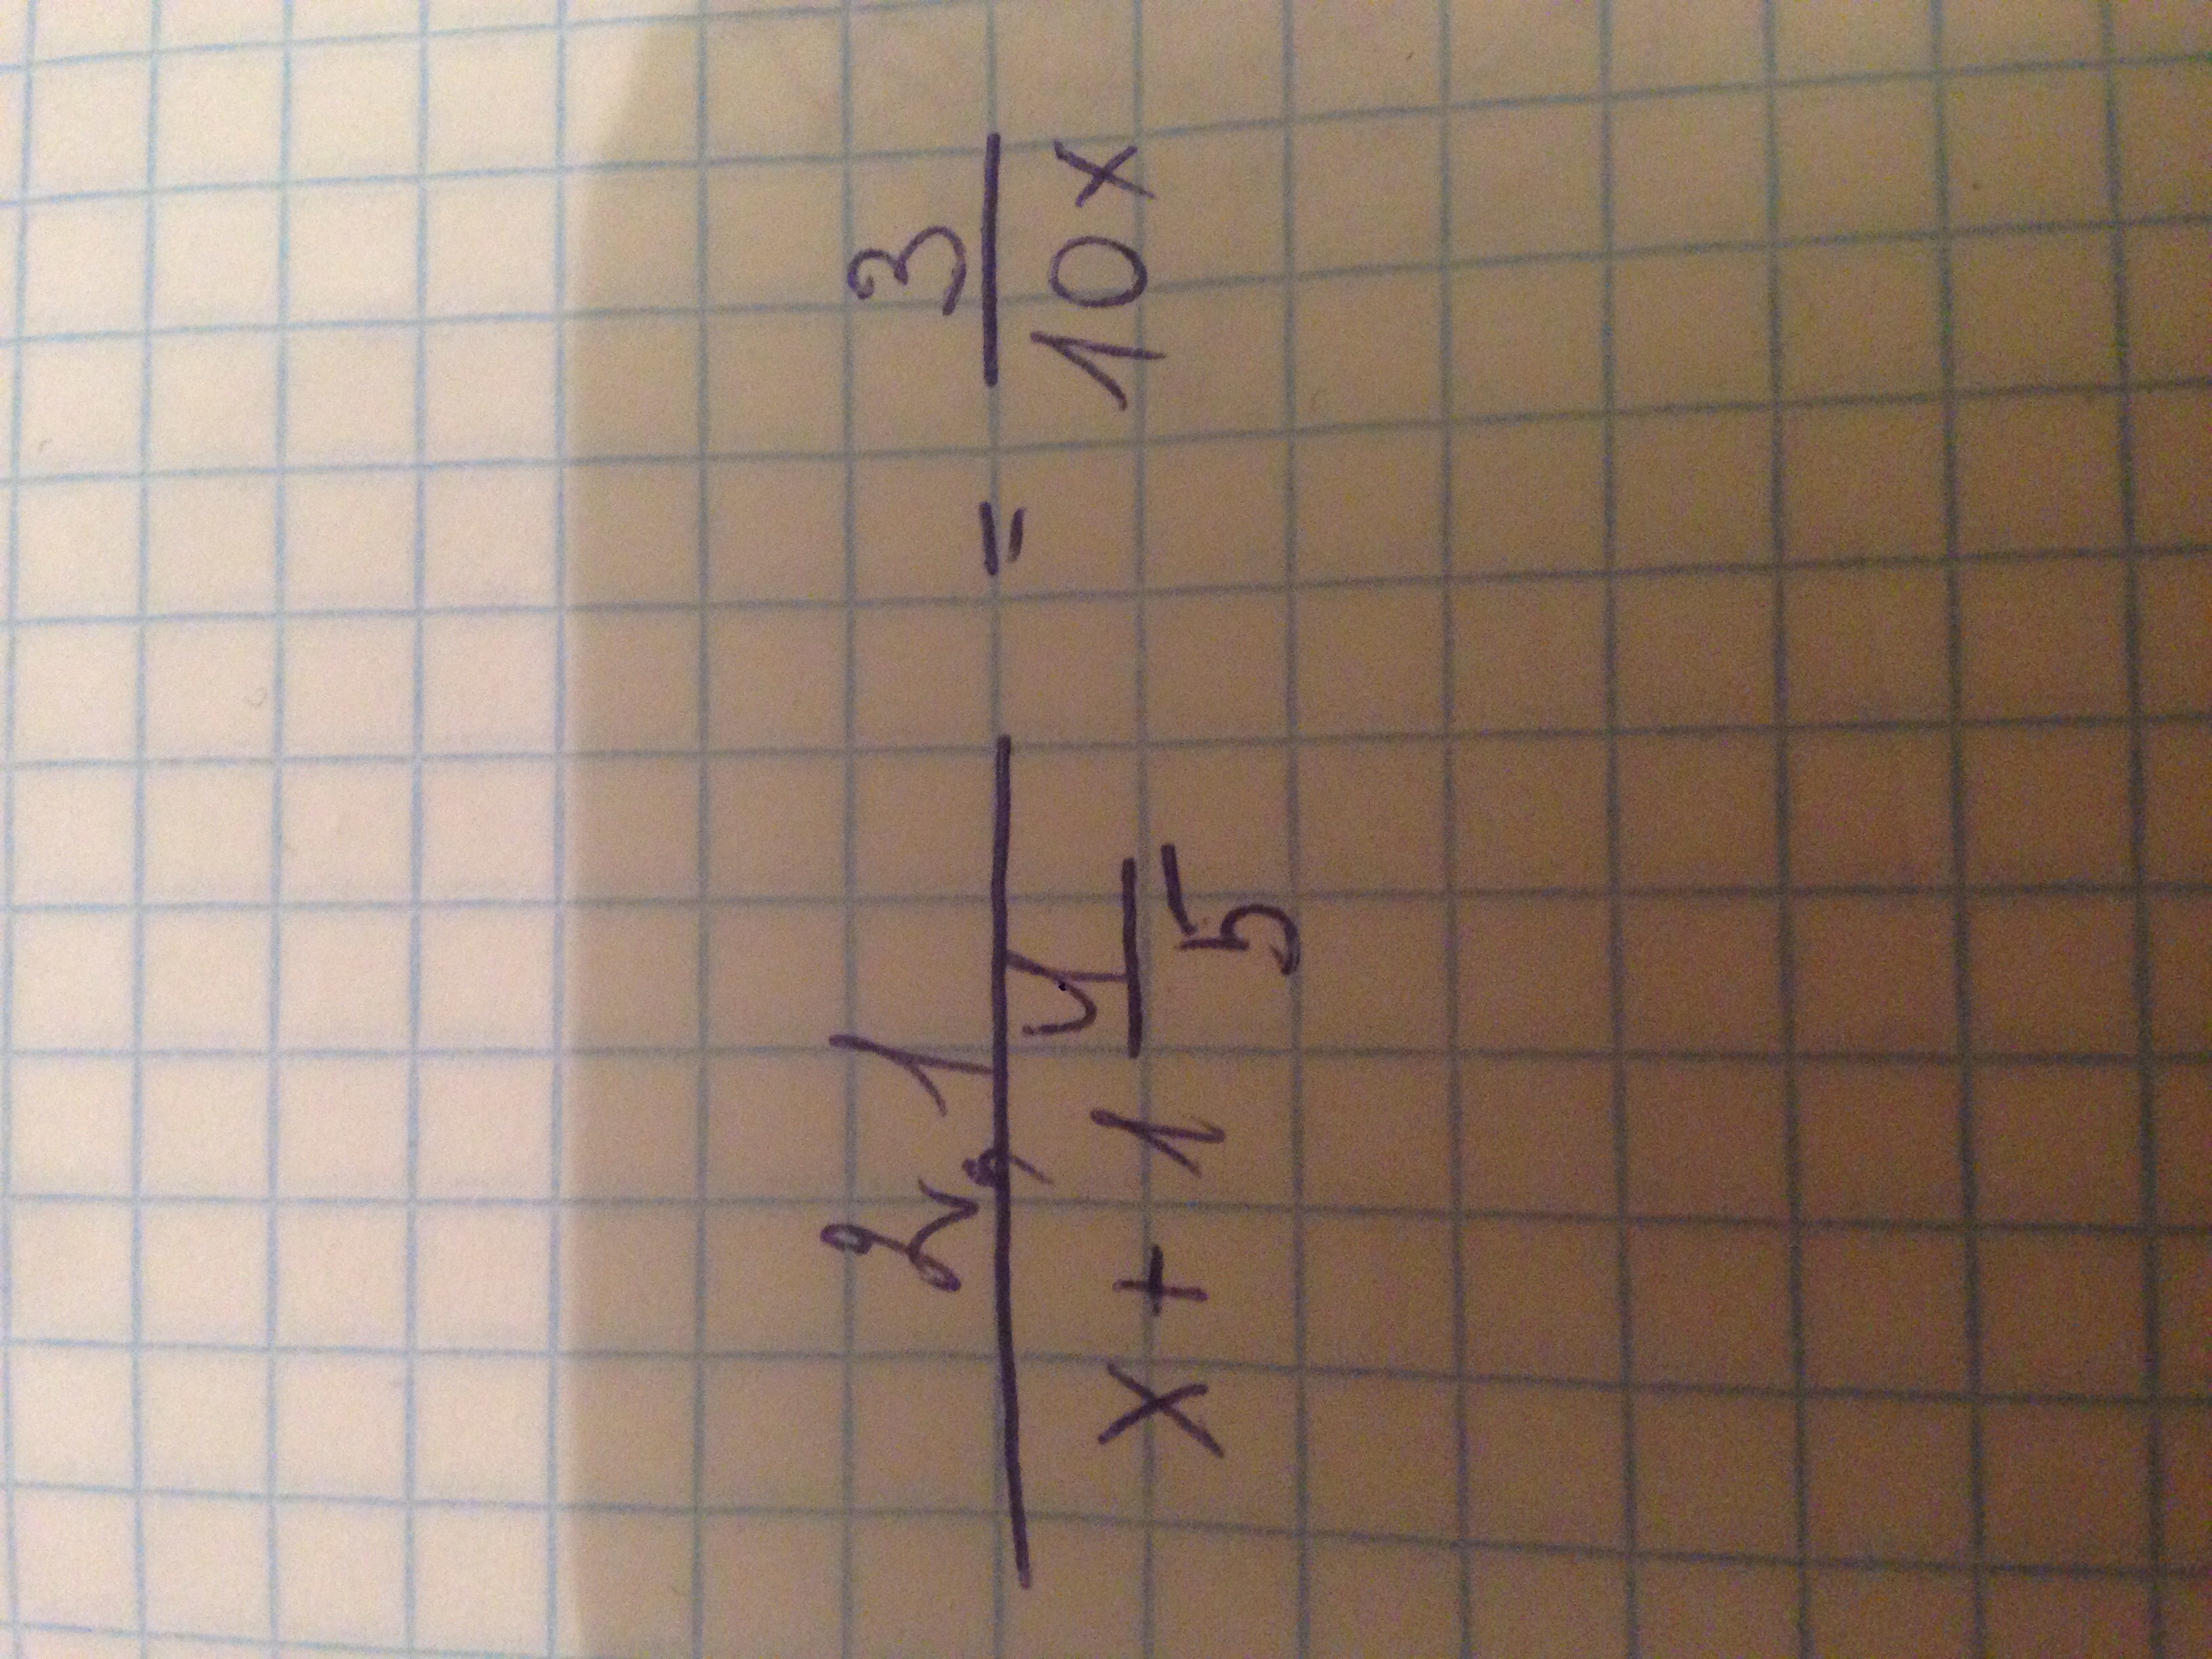 2,1 / (x + 1 4/5) = 3 / 10x